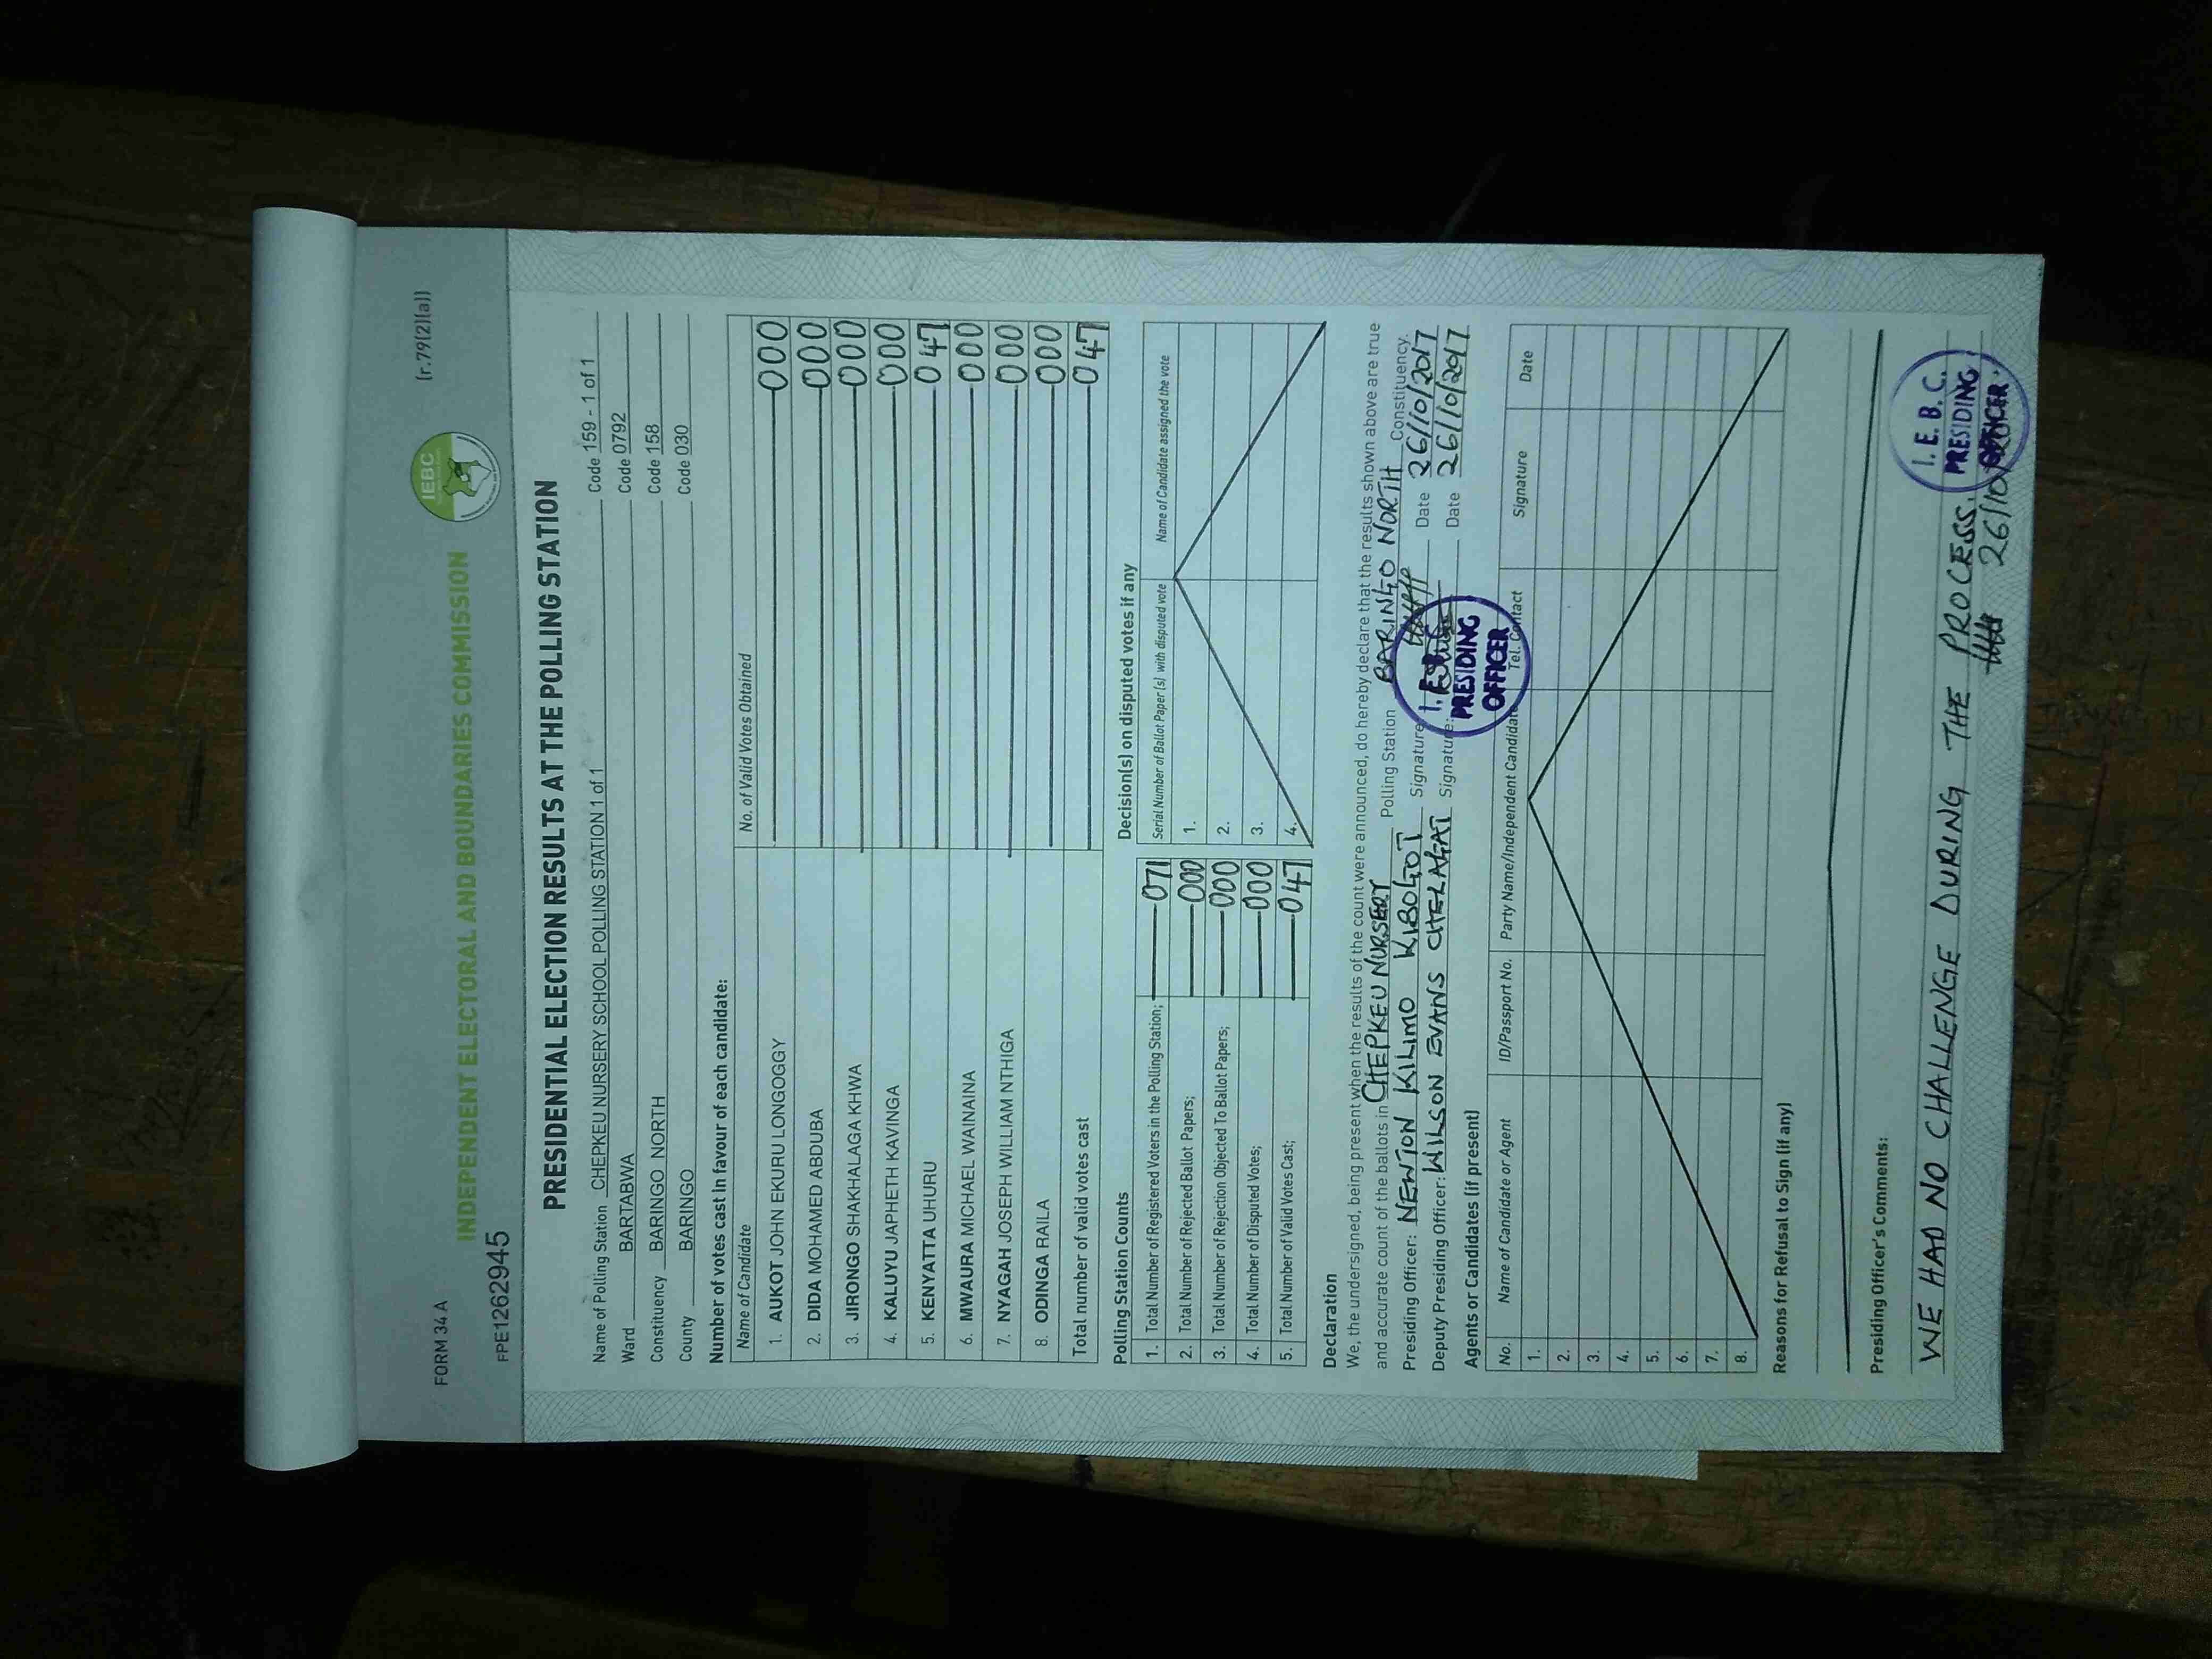 FORM 34 A
(r.79(2)(a))
INDEPENDENT ELECTORAL AND BOUNDARIES COMMISSION
IEBC
FPE1262945
PRESIDENTIAL ELECTION RESULTS AT THE POLLING STATION
Name of Polling Station CHEPKEU NURSERY SCHOOL POLLING STATION 1 of 1 Code 159 - 1 of 1
Ward BARTABWA Code 0792
Constituency BARINGO NORTH Code 158
County BARINGO Code 030
Number of votes cast in favour of each candidate:
Name of Candidate No. of Valid Votes Obtained
1. AUKOT JOHN EKURU LONGOGGY 000
2. DIDA MOHAMED ABDUBA 000
3. JIRONGO SHAKHALAGA KHWA 000
4. KALUYU JAPHETH KAVINGA 000
5. KENYATTA UHURU 047
6. MWAURA MICHAEL WAINAINA 000
7. NYAGAH JOSEPH WILLIAM NTHIGA 000
8. ODINGA RAILA 000
Total number of valid votes cast 047
Polling Station Counts
1. Total Number of Registered Voters in the Polling Station; 071
2. Total Number of Rejected Ballot Papers; 000
3. Total Number of Rejection Objected To Ballot Papers; 000
4. Total Number of Disputed Votes; 000
5. Total Number of Valid Votes Cast; 047
Decision(s) on disputed votes if any
Serial Number of Ballot Paper(s) with disputed vote Name of Candidate assigned the vote
1.
2.
3.
4.
Declaration
We, the undersigned, being present when the results of the count were announced, do hereby declare that the results shown above are true
and accurate count of the ballots in CHEPKEU NURSERY Polling Station BARINGO NORTH Constituency.
Presiding Officer: NEWTON KILIMO KIBOGOT Signature: Date 26/10/2017
Deputy Presiding Officer: WILSON EVANS CHELAGAT Signature: Date 26/10/2017
PRESIDING
OFFICER
Agents or Candidates (if present)
No. Name of Candidate or Agent ID/Passport No. Party Name/Independent Candidate Tel. Contact Signature Date
1.
2.
3.
4.
5.
6.
7.
8.
Reasons for Refusal to Sign (if any)
Presiding Officer's Comments:
WE HAD NO CHALLENGE DURING THE PROCESS.
I. E. B. C.
PRESIDING
OFFICER